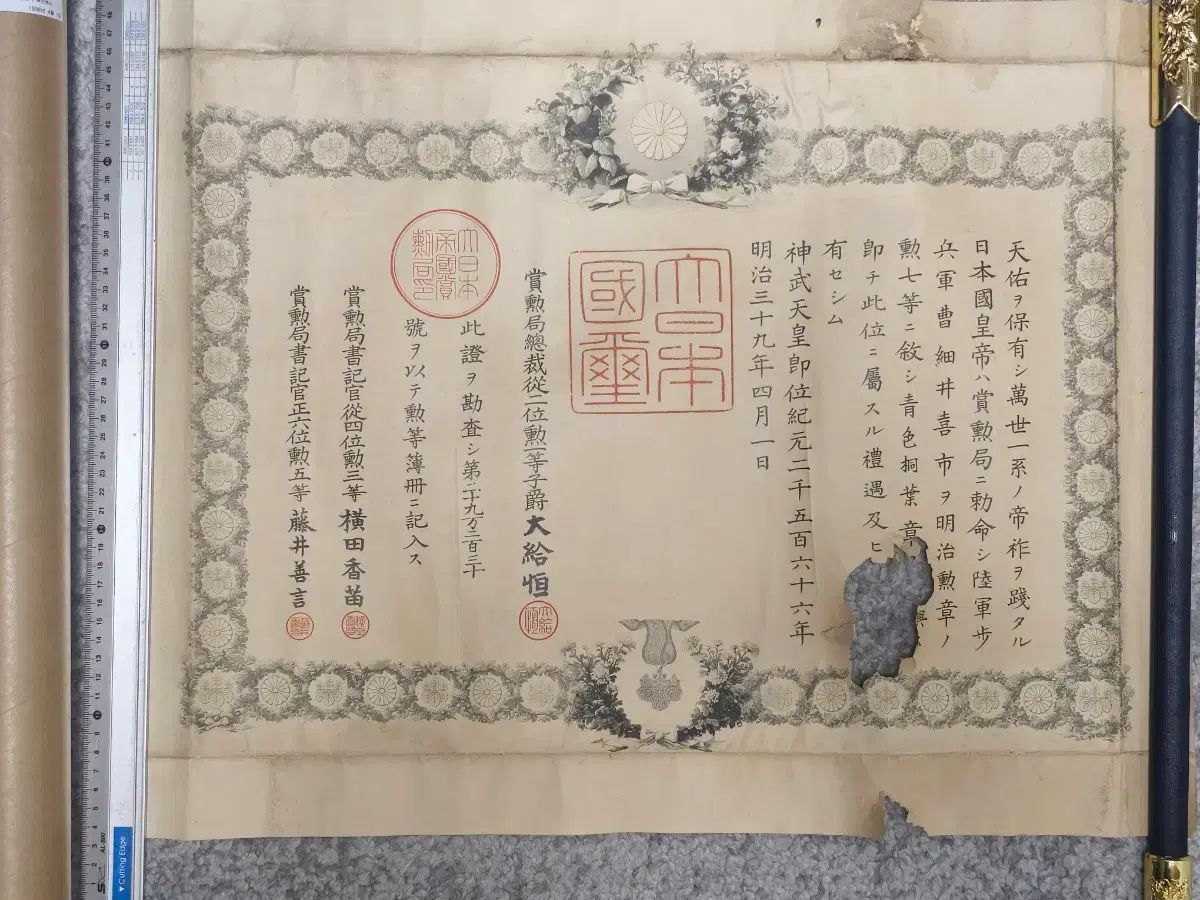 天佑ヲ保有シ萬世一系ノ帝祚ヲ踐タル
日本國皇帝ハ賞勲局ニ勅命シ陸軍歩
兵軍曹細井喜市ヲ明治勲章ノ
勲七等ニ敘シ青色桐葉章
卽チ此位ニ屬スル禮遇及ヒ
有セシム
神武天皇卽位紀元二千五百六十六年
明治三十九年四月一日
大日本
國璽
賞勲局總裁從二位勲一等子爵大給恒
大給恒
此證ヲ勘査シ第二十九万三百三十
號ヲ以テ勲等簿冊ニ記入ス
大日本
帝國賞
勲局印
賞勲局書記官從四位勲三等橫田香苗
賞勲局書記官正六位勲五等藤井善言
Cutting Edge